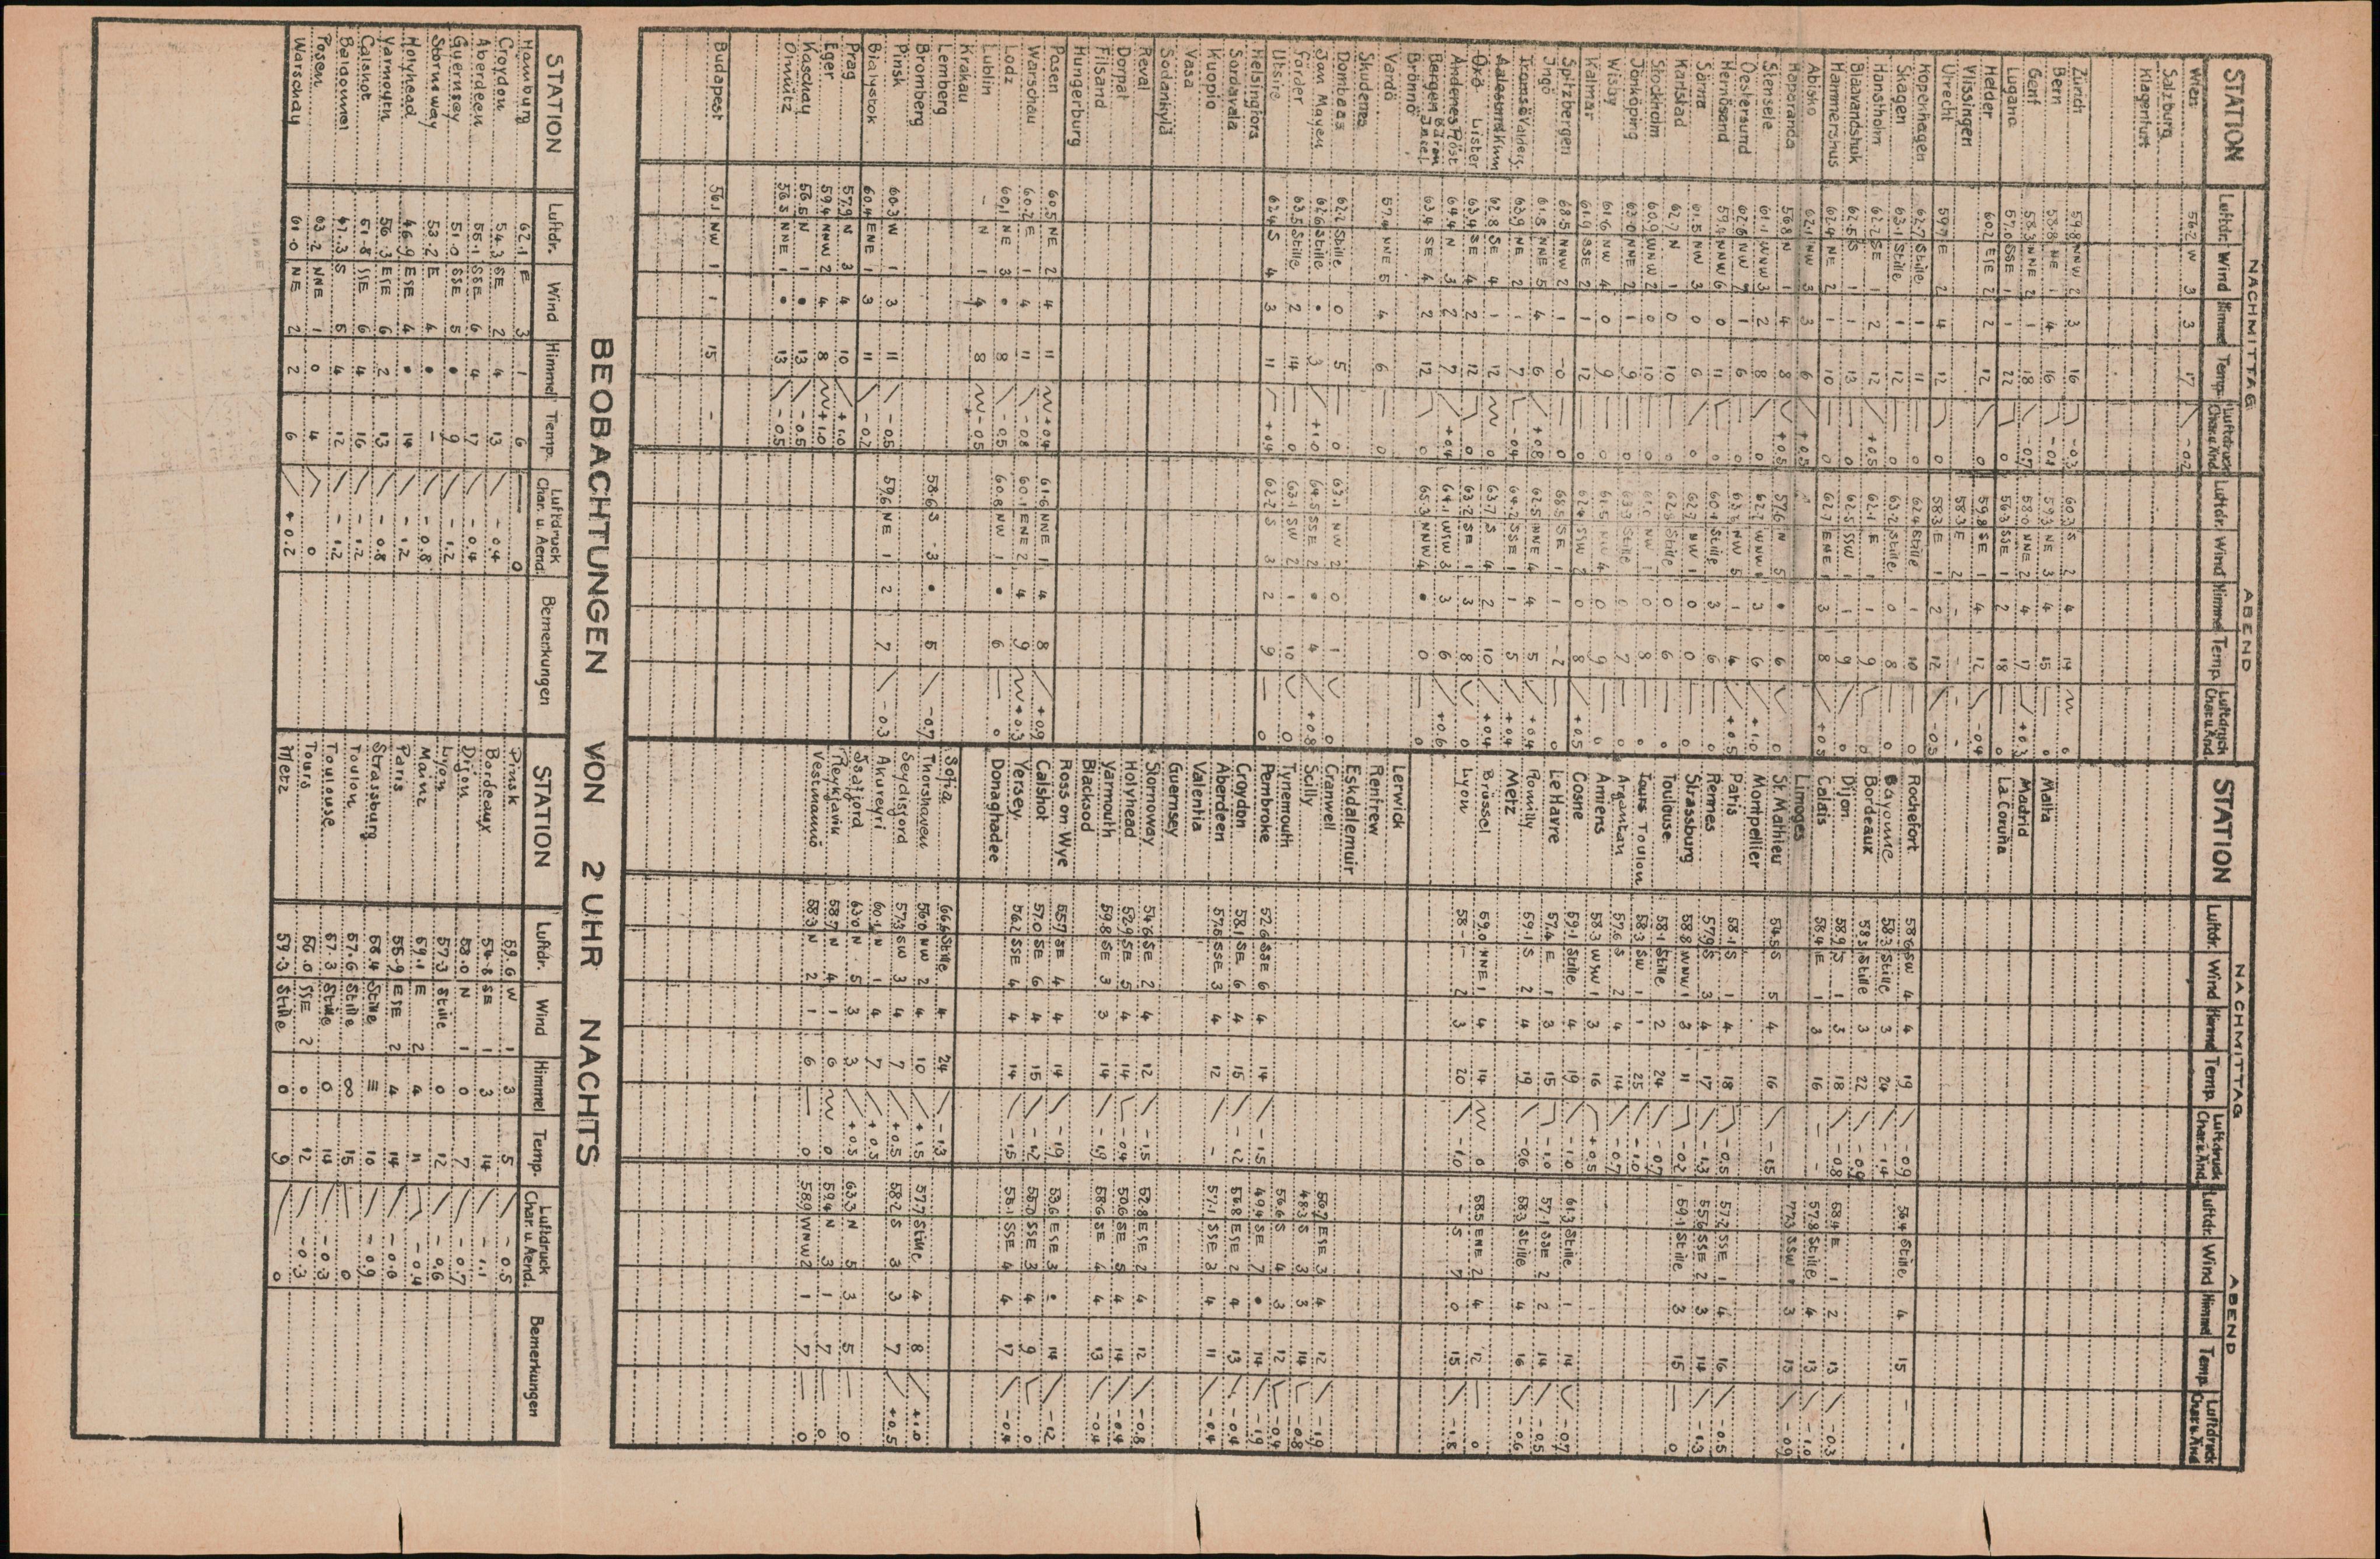 STATION NACHMITTAG ABEND
Luftdr. Wind Himmel Temp. Luftdruck Char.u.Änd. Luftdr. Wind Himmel Temp. Luftdruck Char.u.Änd.
Wien 56.2 W 3 3 17 -0.2
Salzburg
Klagenfurt
Zürich 59.8 NNW 2 3 16 -0.3 60.3 S 2 4 14 0
Bern 58.8 NE 1 4 16 -0.8 59.3 NE 3 4 15 0
Genf 58.3 NNE 2 1 18 -0.7 58.0 NNE 2 4 17 +0.3
Lugano 57.0 SSE 1 1 22 0 56.3 SSE 1 2 18 0
Helder 60.2 ESE 2 2 12 0 59.8 SE 1 4 12 -0.4
Vlissingen 58.3 E 2 - -
Utrecht 59.7 E 2 4 12 0 58.3 E 1 2 12 -0.5
Kopenhagen 62.7 Stille 1 11 0 62.4 Stille 1 10 0
Skagen 63.1 Stille 1 12 0 63.2 Stille 0 8 0
Hanstholm 62.2 SE 1 2 12 +0.5 62.1 E 1 1 9 0
Blaavandshuk 62.5 S 1 1 13 0 62.5 SSW 1 1 9 0
Hammershus 62.4 NE 2 1 10 0 62.7 ENE 1 3 8 +0.5
Abisko 62.1 NW 3 3 6 +0.5
Haparanda 56.8 N 1 4 8 +0.5 57.6 N 5 • 6 0
Stensele 61.1 WNW 3 2 8 0 62.7 WNW 1 3 6 +1.0
Oestersund 62.6 NW 2 1 6 0 63.6 NW 5 1 4 +0.5
Hernösand 59.4 NNW 6 0 11 0 60.4 Stille 3 6 0
Särna 61.5 NNW 3 0 6 0 62.7 NW 1 0 0 0
Karlstad 62.7 N 1 0 10 0 62.8 Stille 0 6 0
Stockholm 60.9 WNW 2 0 10 0 61.0 NW 1 0 8 0
Jönköping 63.0 NNE 2 1 9 0 63.3 Stille 0 7 0
Wisby 61.6 NW 4 0 9 0 61.5 NW 4 0 9 0
Kalmar 61.9 SSE 2 1 12 0 62.4 SSW 2 0 8 +0.5
Spitzbergen 68.5 NNW 2 1 -0 0 68.5 SE 1 1 -2 0
Ingö 61.8 NNE 5 4 6 +0.8 62.5 NNE 4 4 5 +0.4
Tromsö Valders. 63.9 NE 2 1 7 -0.4 64.2 SSE 1 1 5 +0.4
Aalesund Kinn 62.8 SE 4 1 12 0 63.7 S 4 2 10 +0.4
Oxö Lister 63.4 SE 4 2 12 0 63.2 SE 1 3 8 0
Andenes Röst 64.4 N 3 2 7 +0.4 64.1 WSW 3 3 6 +0.6
Bergen Bären Insel 63.4 SE 4 2 12 0 65.3 NNW 4 • 0 0
Brönnö
Vardö 57.4 NNE 5 4 6 0
Skudenes
Dombaas 62.2 Stille 0 5 0 63.1 NW 2 0 1 0
Jan Mayen 62.6 Stille • 3 +1.0 64.5 SSE 2 • 4 +0.8
Forder 63.5 Stille 2 14 0 63.1 SW 2 1 10 0
Utsire 63.4 S 4 3 11 +0.4 62.7 S 3 2 9 0
Helsingfors
Sordavala
Kuopio
Vasa
Sodankylä
Reval
Dorpat
Filsand
Hungerburg
Posen 60.5 NE 2 4 11 +0.4 61.6 NNE 1 4 8 +0.9
Warschau 60.2 E 1 4 11 -0.8 60.1 ENE 2 4 9 +0.3
Lodz 60.1 NE 3 • 8 -0.5 60.8 NW 1 • 6 0
Lublin - N 1 4 8 -0.5
Krakau
Lemberg
Bromberg 58.6 S -3 • 5 -0.7
Pinsk 60.3 W 1 3 11 -0.5 59.6 NE 1 2 7 -0.3
Bialystok 60.4 ENE 1 3 11 -0.2
Prag 57.9 N 3 4 10 +1.0
Eger 59.4 NNW 2 4 8 +1.0
Kaschau 56.5 N 1 • 13 -0.5
Olmütz 56.5 NNE 1 • 13 -0.5
Budapest 56.1 NW 1 1 15 -
STATION NACHMITTAG ABEND
Luftdr. Wind Himmel Temp. Luftdruck Char.u.Änd. Luftdr. Wind Himmel Temp. Luftdruck Char.u.Änd.
Malta
Madrid
La Coruña
Rochefort 58.6 SW 4 4 19 -0.9 56.4 Stille 4 15 - -
Bayonne 58.3 Stille 3 24 -1.4
Bordeaux 58.3 Stille 3 22 -0.9
Dijon 58.9 S 1 3 18 -0.8 58.4 E 1 2 13 -0.3
Calais 58.4 E 1 3 16 - - 57.8 Stille 4 13 -1.0
Limoges 3 13 -0.9
St. Mathieu 54.5 S 5 4 16 -1.5
Montpellier
Paris 58.1 S 1 4 18 -0.5 57.2 SSE 1 4 16 -0.5
Rennes 57.9 S 3 4 17 -1.3 55.6 SSE 2 3 14 -1.3
Strassburg 58.8 WNW 1 3 11 -0.2 59.1 Stille 3 15 0
Toulouse 58.1 Stille 2 24 -0.7
Tours Toulon 58.3 SW 1 1 25 +1.0
Argentan 57.6 S 2 4 14 -0.7
Amiens 58.3 WSW 1 3 16 +0.5
Cosne 59.1 Stille 4 19 -1.0 61.3 Stille 1 14 -0.7
Le Havre 57.4 E 1 3 15 -1.0 57.1 SSE 2 2 14 -0.5
Romilly 59.1 S 2 4 19 -0.6 58.3 Stille 4 16 -0.6
Metz
Brüssel 59.0 NNE 1 4 14 0 58.5 ENE 2 4 12 0
Lyon 58 - - 2 3 20 -1.0 - S 7 0 15 -1.8
Lerwick
Renfrew
Eskdalemuir
Cranwell 56.7 ESE 3 4 12 -1.9
Scilly 48.3 S 3 3 14 -0.8
Tynemouth 56.6 S 4 3 12 -0.4
Pembroke 52.6 SSE 6 4 14 -1.5 49.4 SE 7 • 14 -1.9
Croydon 58.1 SE 6 4 15 -1.2 56.8 ESE 2 4 13 -0.4
Aberdeen 57.8 SSE 3 4 12 - 57.1 SSE 3 4 11 -0.4
Valentia
Guernsey
Stornoway 54.6 SE 2 4 12 -1.5 52.8 ESE 2 4 12 -0.8
Holyhead 52.9 SE 5 4 14 -0.4 50.6 SE 5 4 14 -0.4
Yarmouth 59.8 SE 3 3 14 -1.9 58.6 SE 4 4 13 -0.4
Blacksod
Ross on Wye 55.7 SE 4 4 14 -1.9 53.6 ESE 3 • 14 -1.2
Calshot 57.0 SE 6 4 15 -1.2 55.0 SSE 3 4 9 0
Yersey 56.2 SSE 4 4 14 -1.5 55.1 SSE 4 4 17 -0.4
Donaghadee
Sofia 66.6 Stille 4 24 -1.3
Thorshaven 56.0 NW 2 4 10 +1.5 57.7 Stille 4 8 +1.0
Seydisfjord 57.3 SW 3 4 7 +0.5 58.2 S 3 3 7 +0.5
Akureyri 60.1 N 1 4 7 +0.5
Isafjord 63.0 N 5 3 3 +0.5 63.3 N 5 3 5 0
Reykjavik 58.7 N 4 1 6 0 59.4 N 3 1 7 0
Vestmannö 58.3 N 2 1 6 0 58.9 WNW 2 1 7 0
BEOBACHTUNGEN VON 2 UHR NACHTS
STATION Luftdr. Wind Himmel Temp. Luftdruck Char. u. Aend. Bemerkungen
Hamburg 62.1 E 3 1 6 0
Croydon 54.3 SE 2 4 13 -0.4
Aberdeen 55.1 SSE 6 4 17 -0.4
Guernsey 51.0 SSE 5 • 9 -1.2
Stornoway 53.2 E 4 • - -0.8
Holyhead 46.9 ESE 4 • 14 -1.2
Yarmouth 56.3 ESE 6 2 13 -0.8
Calshot 51.8 SSE 6 4 16 -1.2
Baldonnel 47.3 S 5 4 12 -1.2
Posen 63.2 NNE 1 0 4 0
Warschau 61.0 NE 2 2 6 +0.2
STATION Luftdr. Wind Himmel Temp. Luftdruck Char. u. Aend. Bemerkungen
Pinsk 59.6 W 1 3 5 -0.5
Bordeaux 54.8 SE 1 3 14 -1.1
Dijon 58.0 N 1 0 7 -0.7
Lyon 57.3 Stille 0 12 -0.6
Mainz 59.1 E 2 4 11 -0.4
Paris 55.9 ESE 2 4 14 -0.8
Strassburg 58.4 Stille ≡ 10 -0.9
Toulon 57.6 Stille ∞ 15 0
Toulouse 57.3 Stille 0 14 -0.3
Tours 56.0 SSE 2 0 12 -0.3
Metz 59.3 Stille 0 9 0